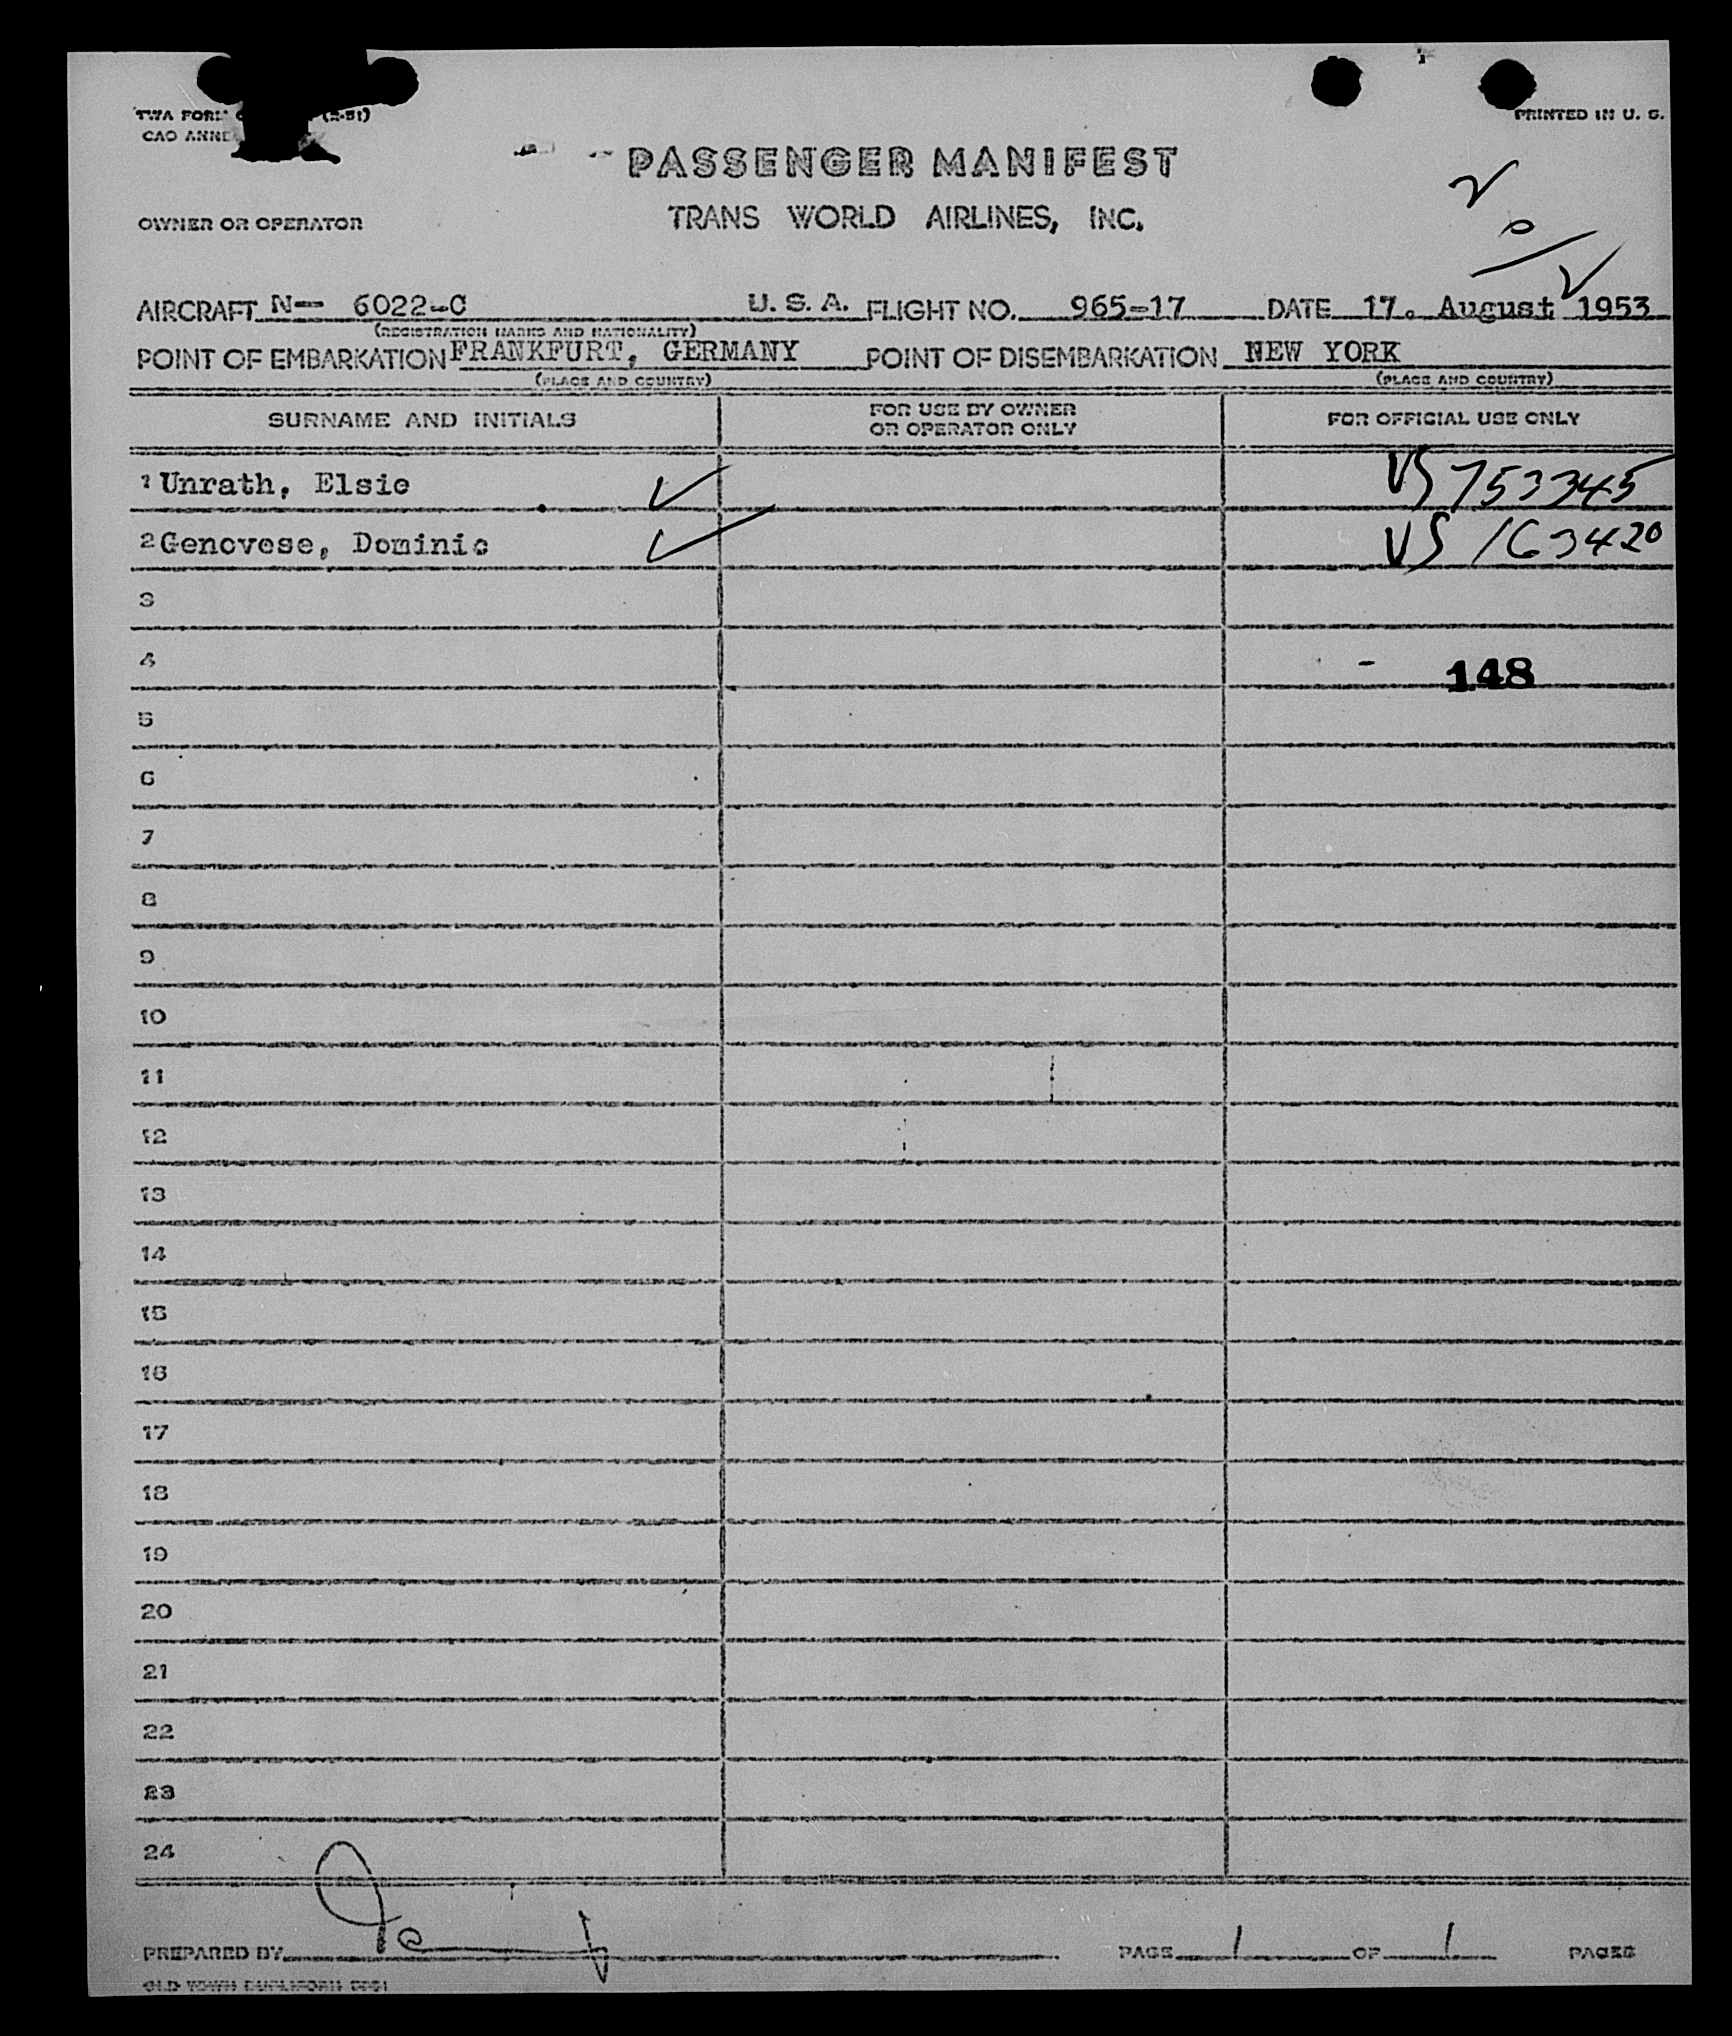 TWA FORM (2-51)
PRINTED IN U. S.
CAO ANNE
PASSENGER MANIFEST
OWNER OR OPERATOR
TRANS WORLD AIRLINES, INC.
AIRCRAFT N— 6022-C U. S. A. FLIGHT NO. 965-17 DATE 17. August 1953
(REGISTRATION MARKS AND NATIONALITY)
POINT OF EMBARKATION FRANKFURT, GERMANY POINT OF DISEMBARKATION NEW YORK
(PLACE AND COUNTRY) (PLACE AND COUNTRY)
SURNAME AND INITIALS
FOR USE BY OWNER
OR OPERATOR ONLY
FOR OFFICIAL USE ONLY
1 Unrath, Elsie VS 753345
2 Genovese, Dominic VS 163420
3
4 148
5
6
7
8
9
10
11
12
13
14
15
16
17
18
19
20
21
22
23
24
PREPARED BY PAGE 1 OF 1 PAGES
OLD TOWN